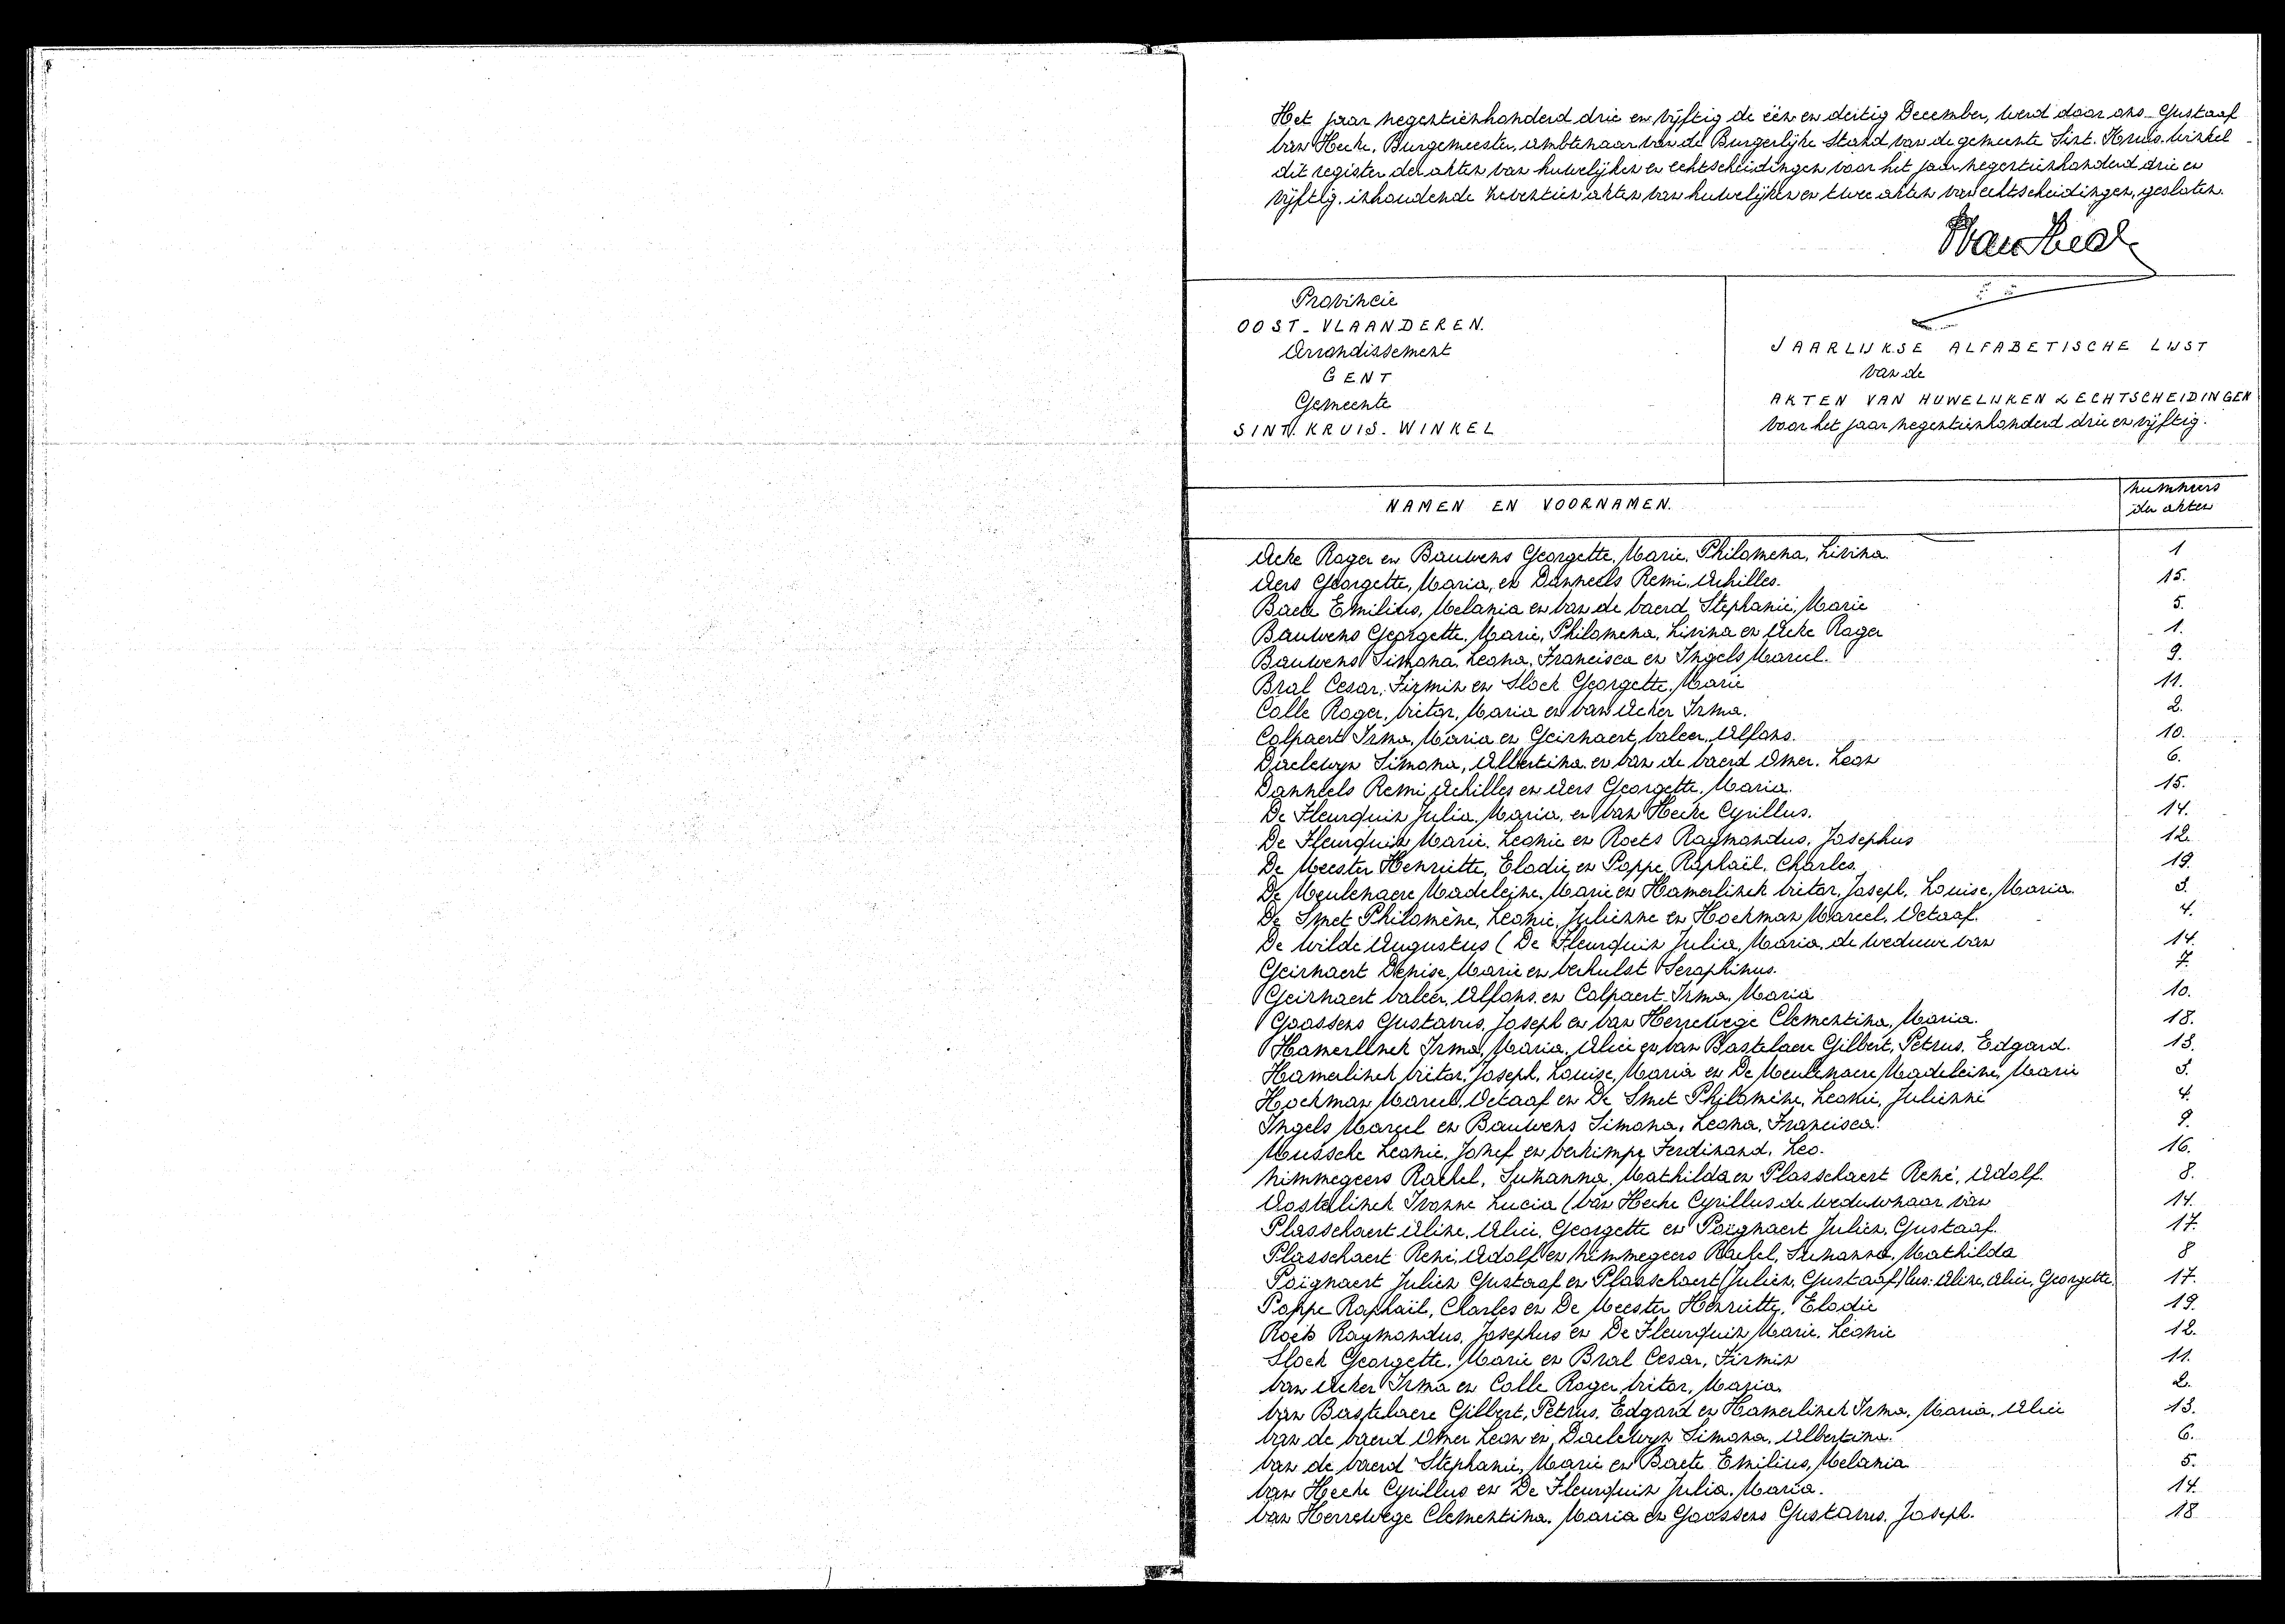 Het jaar negentienhonderd drie en vijftig de één en dertig December, werd door ons Gustaaf
Van Hecke, Burgemeester, Ambtenaar van de Burgerlijke Stand van de gemeente Sint-Kruis-Winkel
dit register der akten van huwelijken en echtscheidingen voor het jaar negentienhonderd drie en
vijftig, inhoudende zeventien akten van huwelijken en twee akten van echtscheidingen, gesloten.
Provincie
OOST-VLAANDEREN.
Arrondissement
GENT
Gemeente
SINT-KRUIS-WINKEL
JAARLIJKSE ALFABETISCHE LIJST
van de
AKTEN VAN HUWELIJKEN & ECHTSCHEIDINGEN
voor het jaar negentienhonderd drie en vijftig.
NAMEN EN VOORNAMEN.
nummers
der akten
Acke Roger en Bauwens Georgette, Marie, Philomena, Livina. 1
Aers Georgette, Maria, en Danneels Remi, Achilles. 15.
Baete Emilius, Melania en Van de Vaerd Stephanie, Marie 5.
Bauwens Georgette, Marie, Philomena, Livina en Acke Roger 1.
Bauwens Simona, Leona, Francisca en Ingels Marcel. 9.
Bral Cesar, Firmin en Slock Georgette, Marie 11.
Colle Roger, Victor, Maria en Van Acker Irma. 2.
Colpaert Irma, Maria en Geirnaert Valeer, Alfons. 10.
Daelewyn Simona, Albertina en Van de Vaerd Omer, Leon 6.
Danneels Remi, Achilles en Aers Georgette, Maria. 15.
De Fleurquin Julia, Maria, en Van Hecke Cyrillus. 14.
De Fleurquin Marie, Leonie en Roets Raymondus, Josephus 12.
De Meester Henriette, Elodie en Poppe Raphaël, Charles. 19.
De Meulenaere Madeleine, Marie en Hamerlinck Victor, Joseph, Louise, Maria. 3.
De Smet Philomène, Leonie, Julienne en Hoekman Marcel, Octaaf. 4.
De Wilde Augustus (De Fleurquin Julia, Maria, de weduwe van 14.
Geirnaert Denise, Marie en Verhulst Seraphinus. 7.
Geirnaert Valeer, Alfons, en Colpaert Irma, Maria 10.
Goossens Gustavus, Joseph en Van Herrewege Clementina, Maria. 18.
Hamerlinck Irma, Maria, Alice en Van Bastelaere Gilbert, Petrus, Edgard. 13.
Hamerlinck Victor, Joseph, Louise, Maria en De Meulenaere Madeleine, Marie 3.
Hoekman Marcel, Octaaf en De Smet Philomène, Leonie, Julienne 4.
Ingels Marcel en Bauwens Simona, Leona, Francisca. 9.
Mussche Leonie, Jozef en Verkimpe Ferdinand, Leo. 16.
Nimmegeers Rachel, Suzanna, Mathilda en Plasschaert René, Adolf. 8.
Oosterlinck Ivonne Lucia (Van Hecke Cyrillus de weduwnaar van 14.
Plasschaert Aline, Alice, Georgette en Poignaert Julien, Gustaaf. 17.
Plasschaert René, Adolf en Nimmegeers Rachel, Suzanna, Mathilda 8
Poignaert Julien Gustaaf en Plasschaert (Julien, Gustaaf) lees: Aline, Alice, Georgette. 17.
Poppe Raphaël, Charles en De Meester Henriette, Elodie 19.
Roets Raymondus, Josephus en De Fleurquin Marie, Leonie 12.
Slock Georgette, Marie en Bral Cesar, Firmin 11.
Van Acker Irma en Colle Roger Victor, Maria. 2.
Van Bastelaere Gilbert, Petrus, Edgard en Hamerlinck Irma, Maria, Alice 13.
Van de Vaerd Omer Leon en Daelewyn Simona, Albertina. 6.
Van de Vaerd Stephanie, Marie en Baete Emilius, Melania 5.
Van Hecke Cyrillus en De Fleurquin Julia, Maria. 14.
Van Herrewege Clementina, Maria en Goossens Gustavus, Joseph. 18